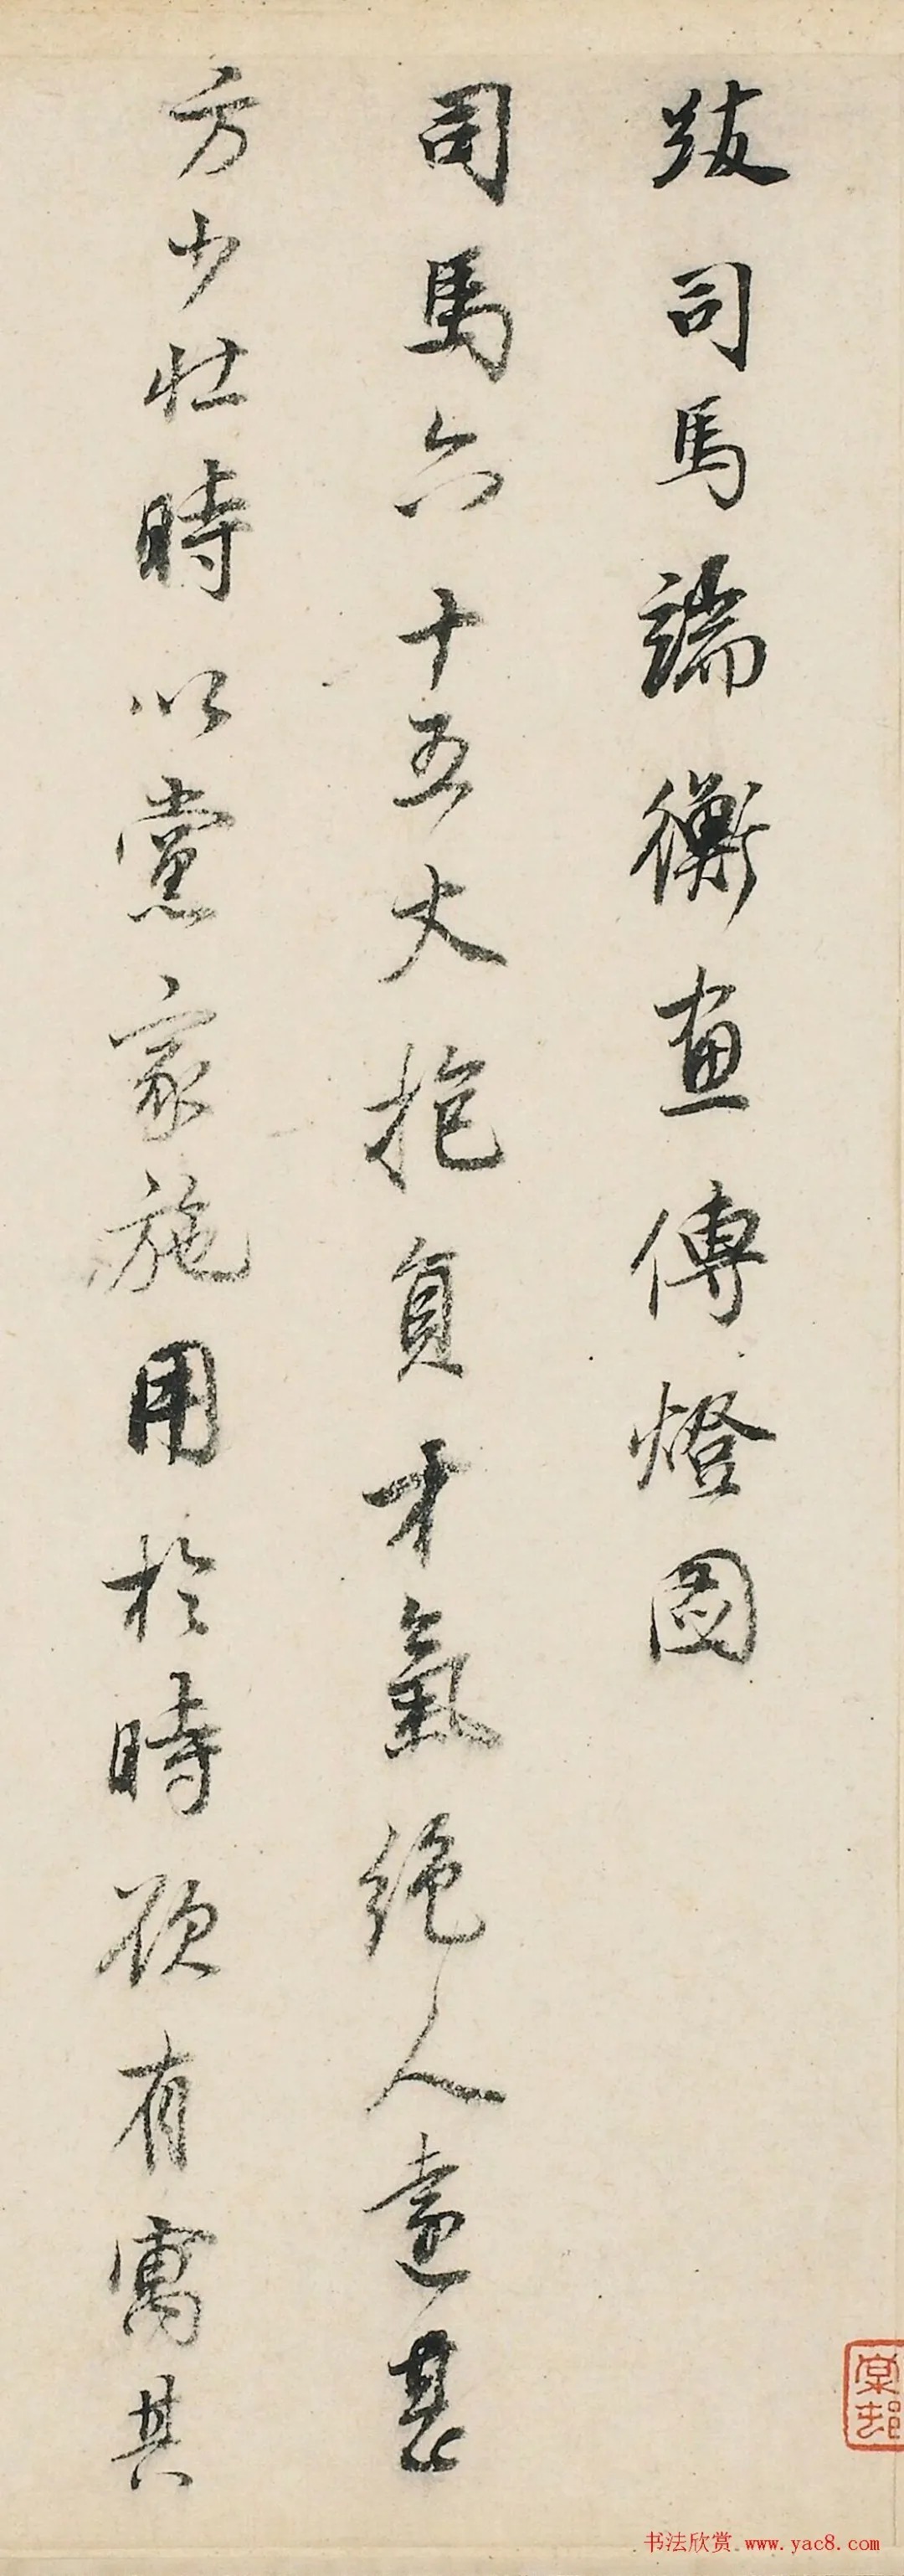 跋司馬端衡畫傳燈圖
司馬六十五丈抱負才氣絕人遠甚
方少壯時以黨家施用於時欲有寓其
书法欣赏 www.yac8.com